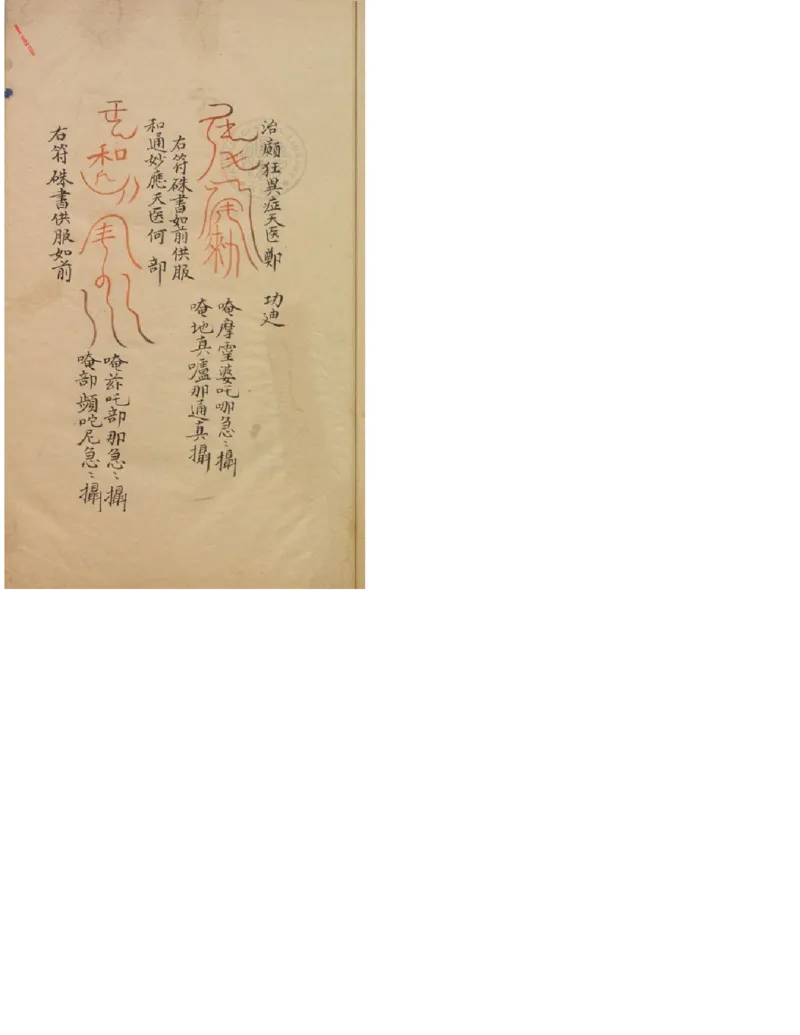 治癲狂異症天医鄭 功迪
唵摩霊婆吒哪急〻攝
唵地真嚧那通真攝
右符硃書如前供服
和通妙應天医何 部
唵茲吒部那急〻攝
唵部頻咜尼急〻攝
右符硃書供服如前